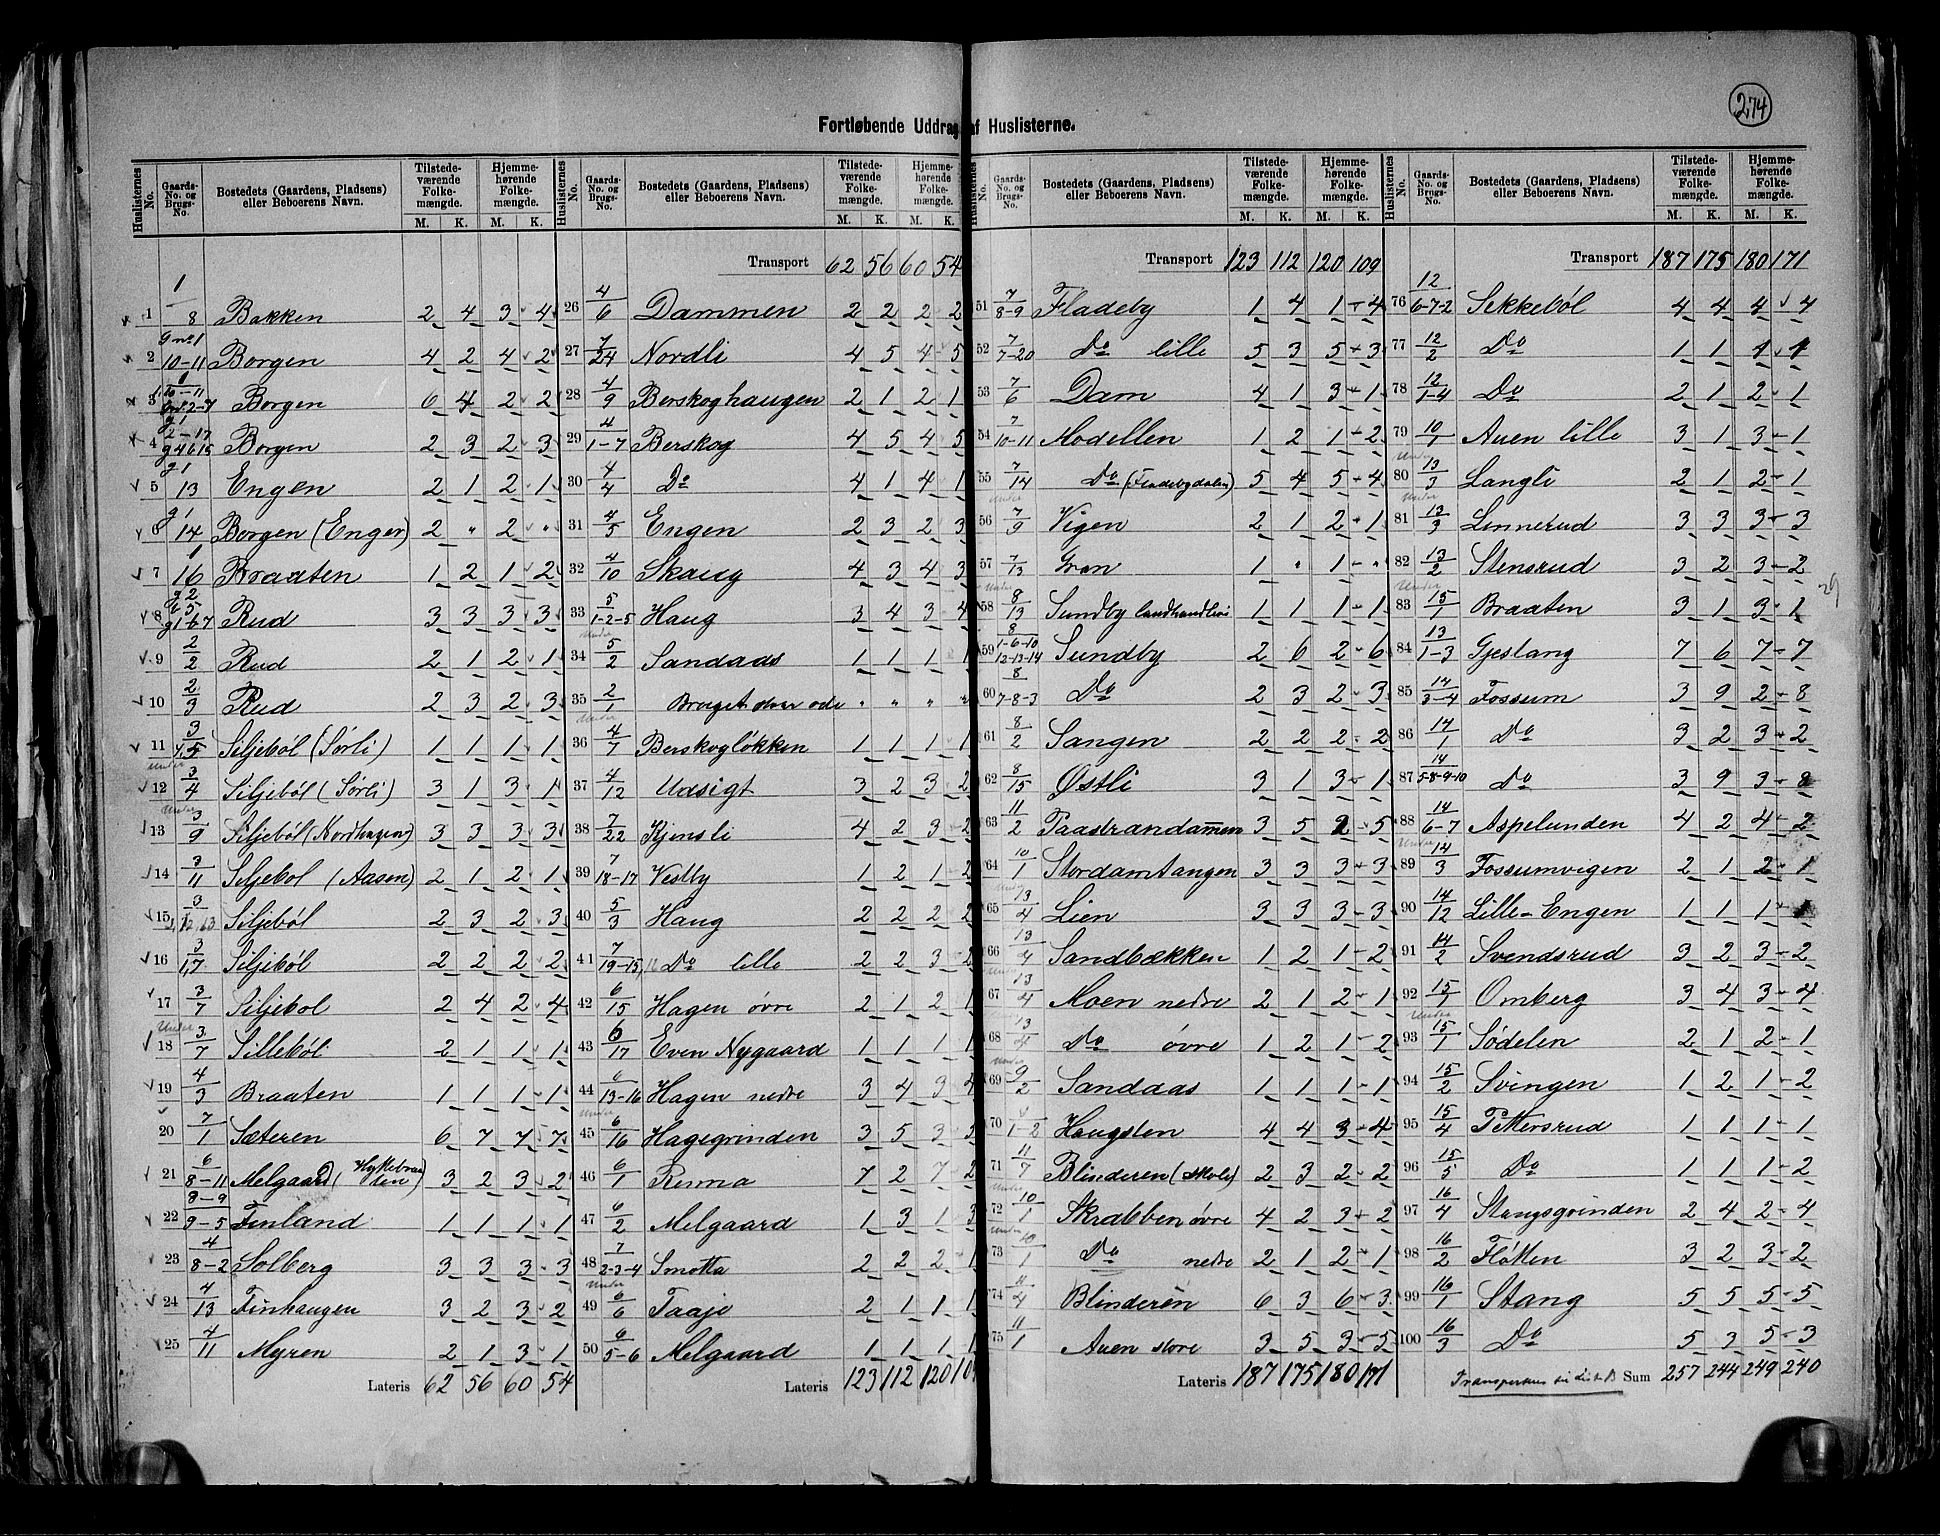 274
Fortløbende Uddrag af Huslisterne.
Huslisternes No. Gaards-No. og Brugs-No. Bostedets (Gaardens, Pladsens) eller Beboerens Navn. Tilstedeværende Folkemængde. M. K. Hjemmehørende Folkemængde. M. K.
1 1/8 Bakken 2 4 3 4
2 10-11 Borgen 4 2 4 2
3 Borgen 6 4 2 2
4 Borgen 2 3 2 3
5 13 Engen 2 1 2 1
6 14 Borgen (Enger) 2 " 2 "
7 1/16 Braaten 1 2 1 2
8 Rud 3 3 3 3
9 2/2 Rud 2 1 2 1
10 2/3 Rud 2 3 2 3
11 Siljeböl (Sörli) 1 1 1 1
Under
12 3/4 Siljeböl (Sörli) 3 1 3 1
Under
13 3/9 Siljeböl (Nordhagen) 3 3 3 3
14 3/11 Siljebol (Aasen) 2 1 2 1
15 Siljeböl 2 3 2 3
16 3/1,7 Siljeböl 2 2 2 2
17 3/7 Siljebol 2 4 2 4
Under
18 3/7 Silleböl 2 1 1 1
19 4/3 Braaten 1 1 1 1
20 7/1 Sæteren 6 7 7 7
21 6/8-11 Melgaard 3 2 3 2
22 8-9/9-5 Finland 1 1 1 1
23 4/8-2 Solberg 3 3 3 3
24 4/13 Finhaugen 3 2 3 2
25 4/11 Myren 2 1 3 1
Lateris 62 56 60 54
Huslisternes No. Gaards-No. og Brugs-No. Bostedets (Gaardens, Pladsens) eller Beboerens Navn. Tilstedeværende Folkemængde. M. K. Hjemmehørende Folkemængde. M. K.
Transport 62 56 60 54
26 4/6 Dammen 2 2 2 2
27 7/24 Nordli 4 5 4 5
28 4/9 Berskoghaugen 2 1 2 1
29 4/1-7 Berskog 4 5 4 5
30 4/4 Do 4 1 4 1
31 4/5 Engen 2 3 2 3
32 4/10 Skaug 4 3 4 3
33 5/1-2-5 Haug 3 4 3 4
Under
34 5/2 Sandaas 1 1 1 1
35 2/1 " " " "
Under
36 4/7 Berskogløkken 1 1 1 1
37 4/12 Udsigt 3 2 3 2
38 7/22 Kjensli 4 2 3 2
39 7/18-17 Vestby 1 2 1 2
40 5/3 Haug 2 2 2 2
41 7/19-15 Do lille 2 2 3 2
42 6/15 Hagen övre 2 1 2 1
43 6/17 Even Nygaard 1 1 1 1
44 6/13-16 Hagen nedre 3 4 3 4
Under
45 6/16 Hagegrinden 3 5 3
46 6/1 Renna 7 2 7 2
47 6/2 Melgaard 1 3 1 3
48 7/2-3-4 Smotta 2 2 2 1
Under
49 6/6 Taaje 2 1 1 1
50 6/5-6 Melgaard 1 1 1 1
Lateris 123 112 120
Huslisternes No. Gaards-No. og Brugs-No. Bostedets (Gaardens, Pladsens) eller Beboerens Navn. Tilstedeværende Folkemængde. M. K. Hjemmehørende Folkemængde. M. K.
Transport 123 112 120 109
51 7/8-9 Fladeby 1 4 1 4
52 7/7-20 Do lille 5 3 5 3
53 7/6 Dam 4 1 3 1
54 7/10-11 Modellen 1 2 1 2
55 7/14 Do (Fladebydalen) 5 4 5 4
Under
56 7/9 Vigen 2 1 2 1
57 7/13 Gran 1 " 1 "
Under
58 8/13 Sundby landhandleri 1 1 1 1
59 8/1-6-10 12-13-14 Sundby 2 6 2 6
60 8/7-8-3 Do 2 3 2 3
61 8/2 Sangen 2 2 2 2
62 8/15 Østli 3 1 3 1
63 11/2 Taastrandammen 3 5 2 5
64 10/1 Stordamtangen 3 3 3 3
Under
65 13/4 Lien 3 3 3 3
66 13/4 Sandbækken 1 2 1 2
67 13/4 Moen nedre 2 1 2 1
68 13/4 Do övre 1 2 1 2
Under
69 9/2 Sandaas 1 1 1 1
70 9/1-2 Haugsten 4 4 3 4
71 11/7 Blinderen (skole) 2 3 2 2
Under
72 10/1 Skrabben övre 4 2 3 2
Under
73 10/1 Do nedre 2 1 2 1
74 11/4 Blinderen 6 3 6 3
75 11/1 Auen store 3 5 3 5
Lateris 187 175 180 171
Huslisternes No. Gaards-No. og Brugs-No. Bostedets (Gaardens, Pladsens) eller Beboerens Navn. Tilstedeværende Folkemængde. M. K. Hjemmehørende Folkemængde. M. K.
Transport 187 175 180 171
76 12/6-7-2 Sekkeböl 4 4 4 4
77 12/2 Do 1 1 1 1
78 12/1-4 Do 2 1 2 1
79 10/1 Auen lille 3 1 3 1
Under
80 13/3 Langli 2 1 2 1
Under
81 13/3 Linnerud 3 3 3 3
82 13/2 Stensrud 3 2 3 2
Under
83 15/1 Braaten 3 1 3 1
29
84 13/1-3 Gjeslang 7 6 7 7
85 14/3-4 Fossum 3 9 2 8
86 14/1 Do 3 2 3 2
87 14/5-8-9-10 Do 3 9 3 8
88 14/6-7 Aspelunden 4 2 4 2
Under
89 14/3 Fossumvigen 2 1 2 1
90 14/12 Lille-Engen 1 1 1 1
91 14/2 Svendsrud 3 2 3 2
92 15/1 Omberg 3 4 3 4
Under
93 15/1 Södelen 2 1 2 1
94 15/2 Svingen 1 2 1 2
95 15/4 Pettersrud 1 1 1 1
96 15/5 Do 1 1 1 2
97 16/4 Stangsgrinden 2 4 2 4
98 16/2 Fløtten 3 2 3 2
99 16/1 Stang 5 5 5 5
100 16/3 Do 5 3 5 3
Sum 257 244 249 240